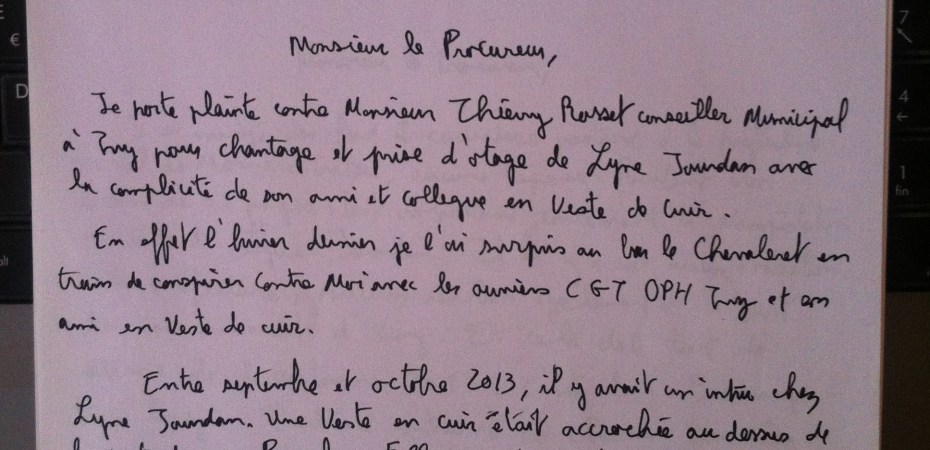 Monsieur le Procureur,
Je porte plainte contre Monsieur Thierry Rosset conseiller Municipal
à Ivry pour chantage et prise d'otage de Lyne Jourdan avec
la complicité de son ami et collegue en Veste de cuir.
En effet l'hiver dernier je l'ai surpris au bar le Chevaleret en
train de conspirer contre Moi avec les ouvriers CGT OPH Ivry et son
ami en Veste de cuir.
Entre septembre et octobre 2013, il y avait un intru chez
Lyne Jourdan. Une Veste en cuir était accrochée au dessus de